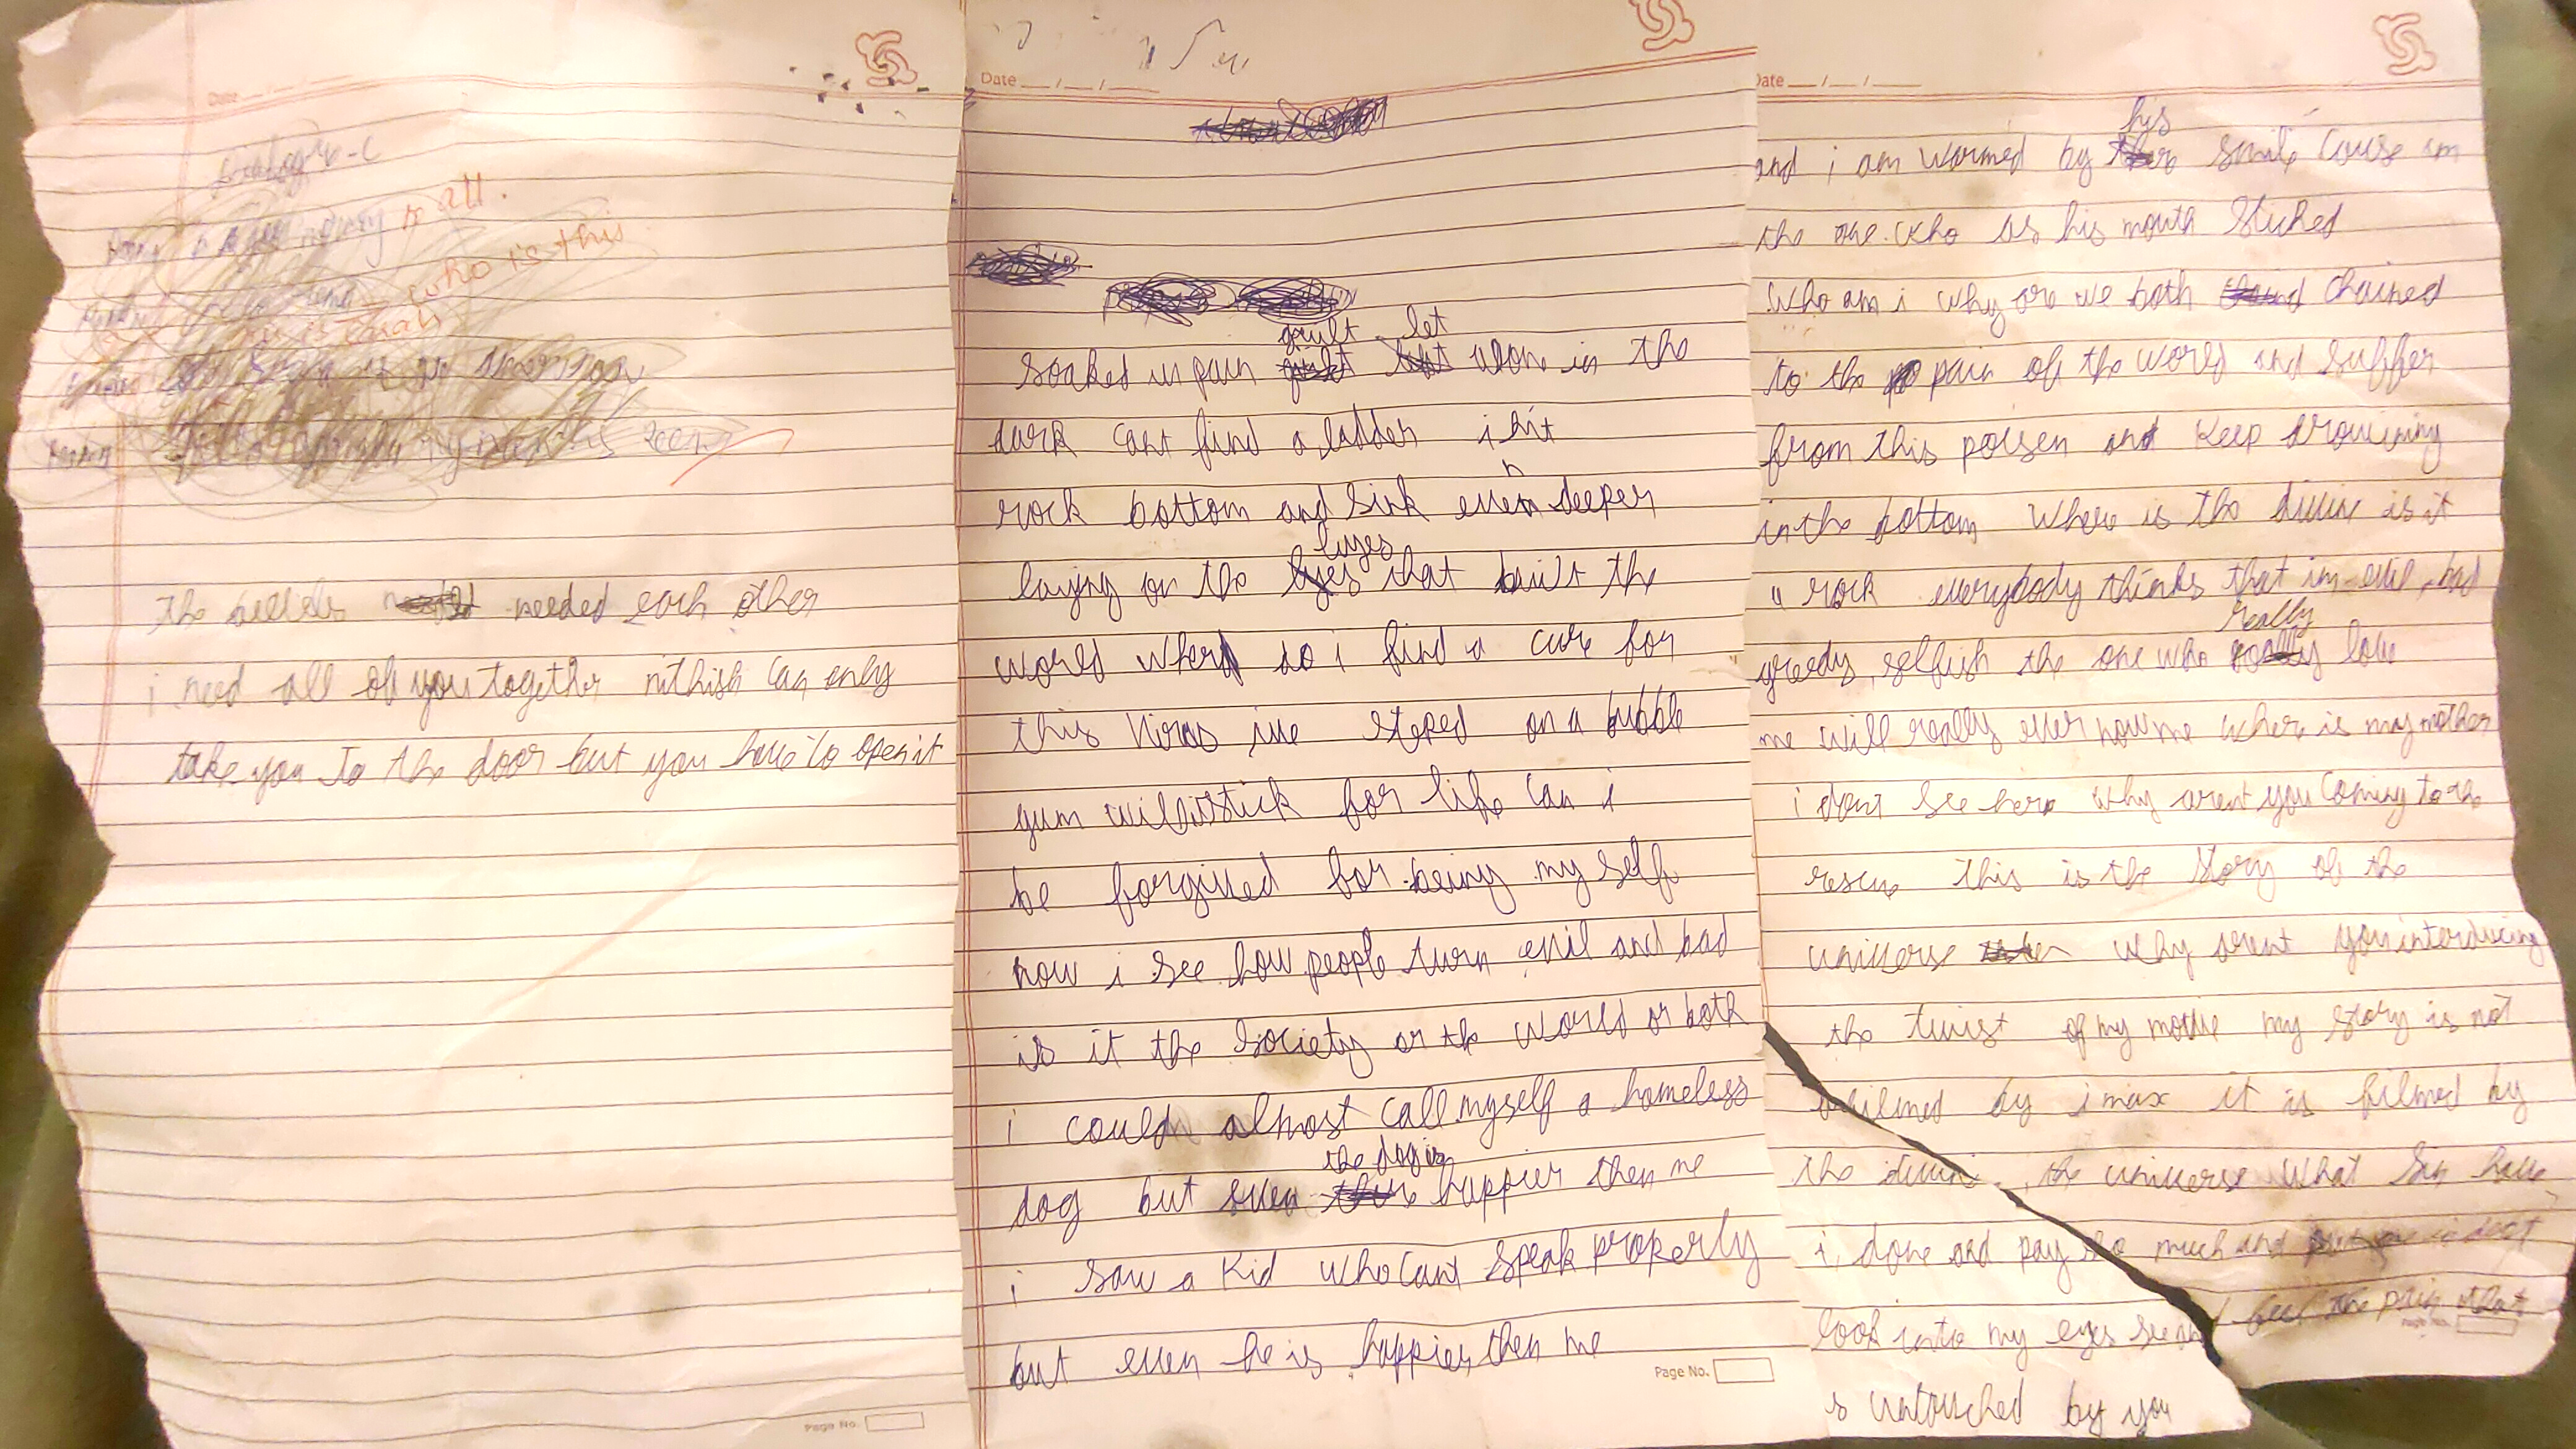 Date
all.
who is this
the beetles needed each other
i need all of you together nithish can only
take you to the door but you have to open it
Page No.
Date __/__/__
guilt let
soaked in pain alone in the
dark cant find a ladder i hit
n
rock bottom and sink even deeper
lyes
laying on the lyes that built the
world where do i find a cure for
this viras ive steped on a bubble
gum will it stick for life can i
be forgived for being my self
now i see how people turn evil and bad
is it the society or the world or both
i could almost call myself a homeless
the dog is
dog but even happier then me
i saw a kid who cant speak properly
but even he is happier then me
Page No.
Date __/__/__
his
and i am warmed by smile couse im
the one who as his mouth stiched
who am i why are we both chained
to the pain of the world and suffer
from this poisen and keep drowining
in the bottom where is the divin is it
a rock everybody thinks that im evil, bad
really
greedy, selfish the one who love
me will really ever now me where is my mother
i dont see here why arent you coming to the
rescue this is the story of the
universe why arent you interducing
the twist of my movie my story is not
by imax it is filmed by
the divin, the universe what sin have
i done and pay so much and
look into my eyes see and feel the pain that
is untouched by you
Page No.